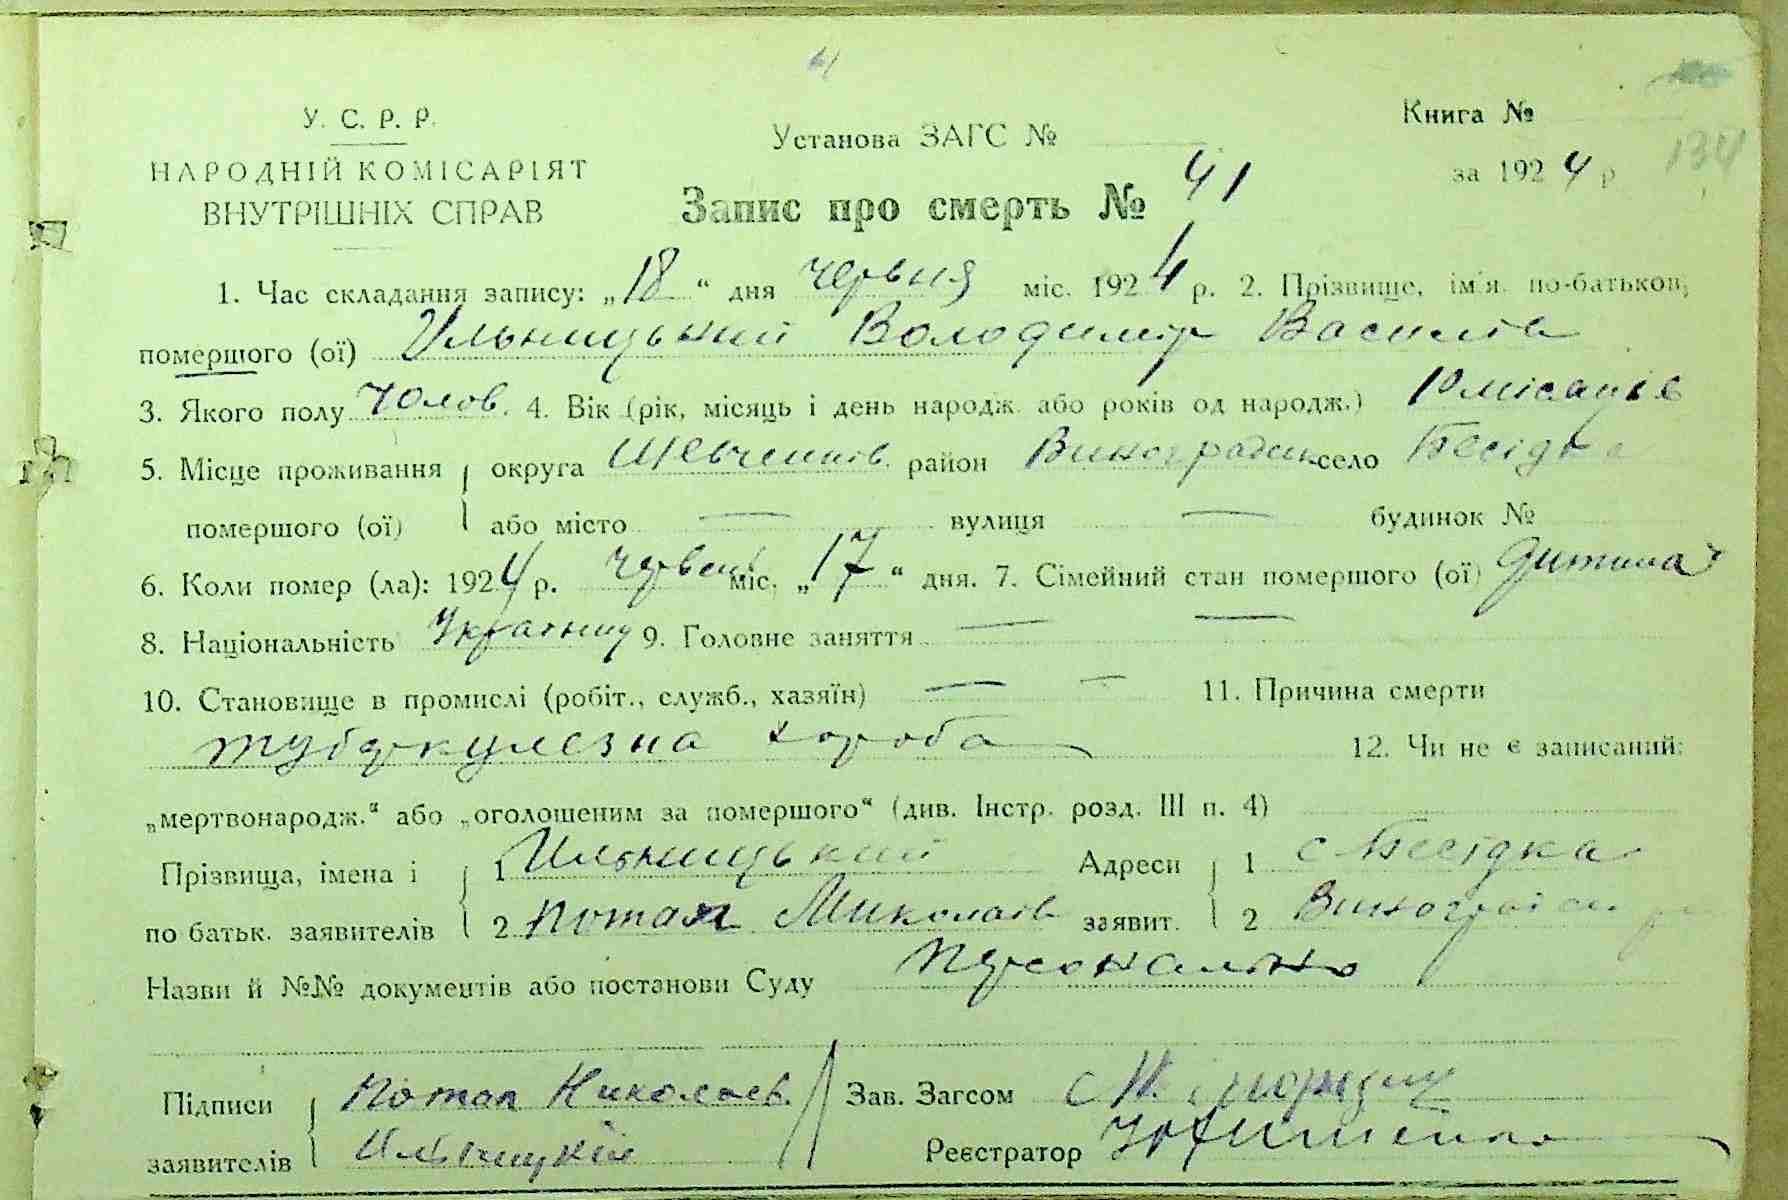 У. С. Р. Р.
НАРОДНІЙ КОМІСАРІЯТ
ВНУТРІШНІХ СПРАВ
Установа ЗАГС №
Запис про смерть № 41
Книга №
за 1924 р
134
1. Час складання запису: „18“ дня червня міс. 1924 р. 2. Прізвище, ім'я, по-батьков,
помершого (ої) Ильницький Володимир Василів
3. Якого полу чолов. 4. Вік (рік, місяць і день народж. або років од народж.) 10 місяців
5. Місце проживання округа Шевченків. район Виноградськ село Бесідка
помершого (ої) або місто — вулиця — будинок №
6. Коли помер (ла): 1924 р. червень міс. „17“ дня. 7. Сімейний стан помершого (ої) дитина
8. Національність Українец 9. Головне заняття — —
10. Становище в промислі (робіт., служб., хазяїн) — — 11. Причина смерти
туберкулезна хороба 12. Чи не є записаний:
„мертвонародж.“ або „оголошеним за помершого“ (див. Інстр. розд. III п. 4)
Прізвища, імена і 1 Ильницький Адреси 1 с Бесідка
по батьк. заявителів 2 Потап Миколаїв заявит. 2
Назви й №№ документів або постанови Суду персонально
Підписи Потап Николаев. Зав. Загсом
заявителів Ильницкій Реєстратор